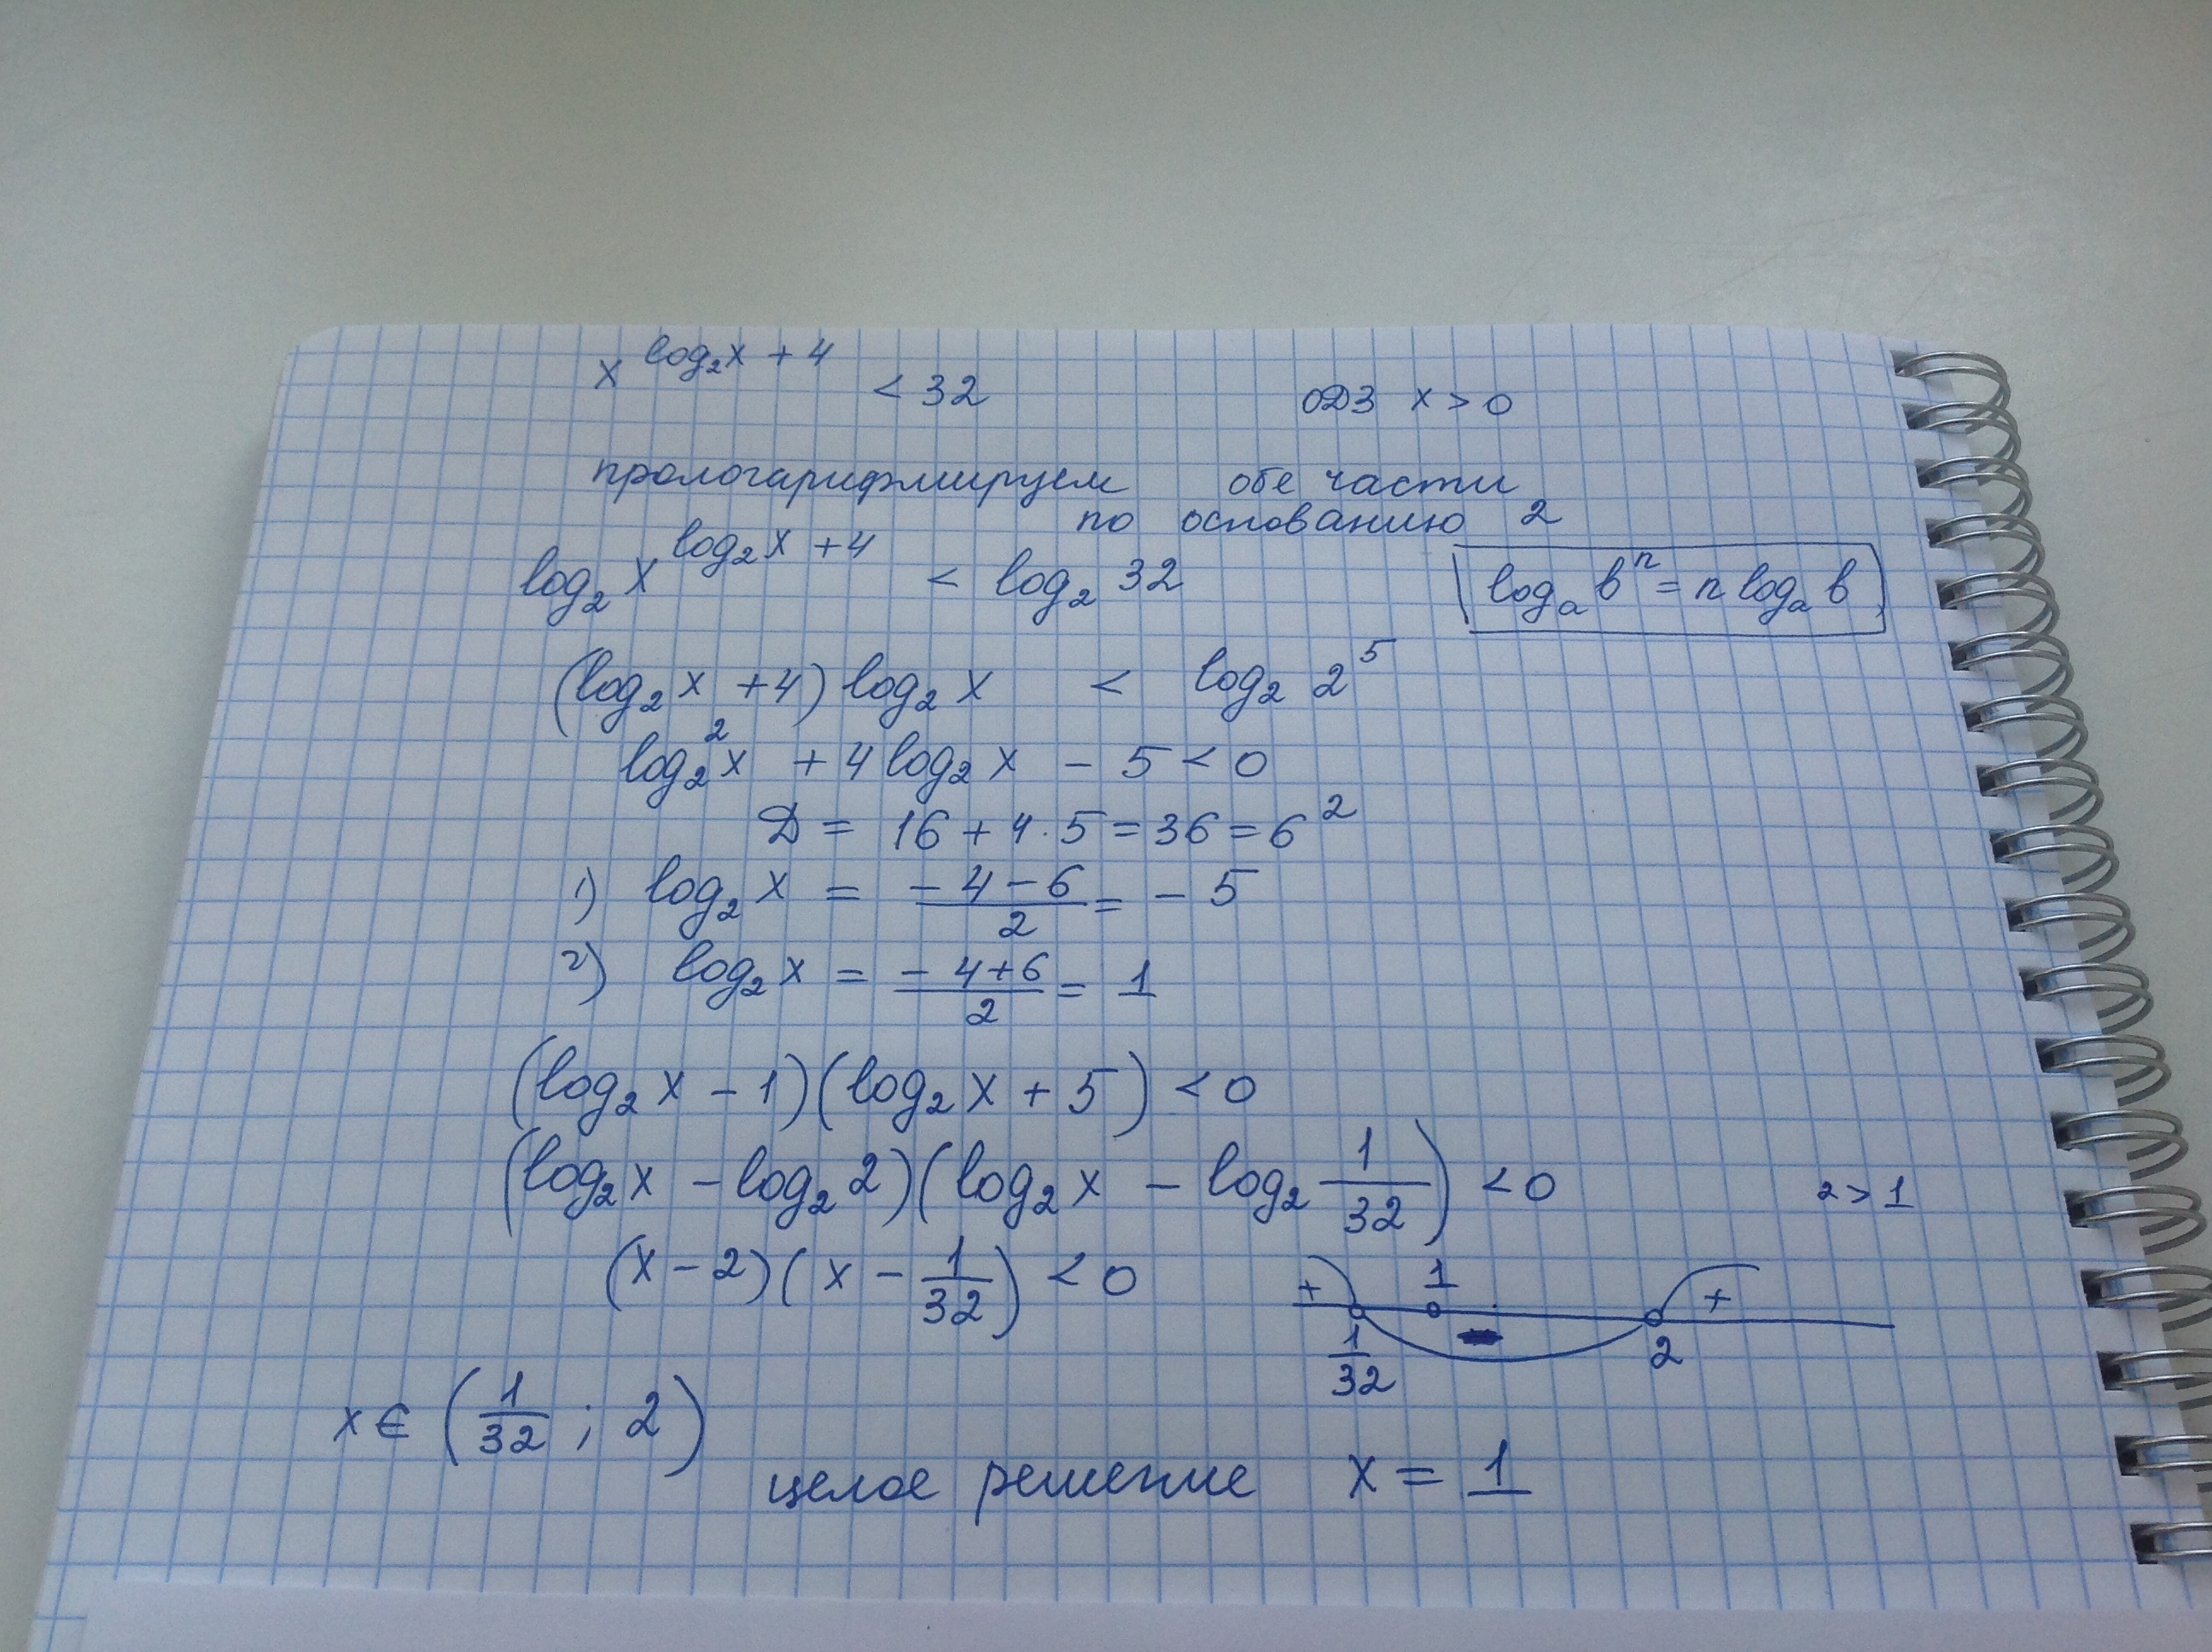 x^(log₂x + 4) < 32     ОДЗ x > 0
прологарифмируем обе части
по основанию 2
log₂ x^(log₂x + 4) < log₂ 32     logₐ bⁿ = n logₐ b
(log₂ x + 4) log₂ x < log₂ 2⁵
log₂² x + 4 log₂ x - 5 < 0
D = 16 + 4 · 5 = 36 = 6²
1) log₂ x = (-4 - 6)/2 = -5
2) log₂ x = (-4 + 6)/2 = 1
(log₂ x - 1)(log₂ x + 5) < 0
(log₂ x - log₂ 2)(log₂ x - log₂ 1/32) < 0     2 > 1
(x - 2)(x - 1/32) < 0     + 1 - +
1/32 2
x ∈ (1/32 ; 2)
целое решение x = 1